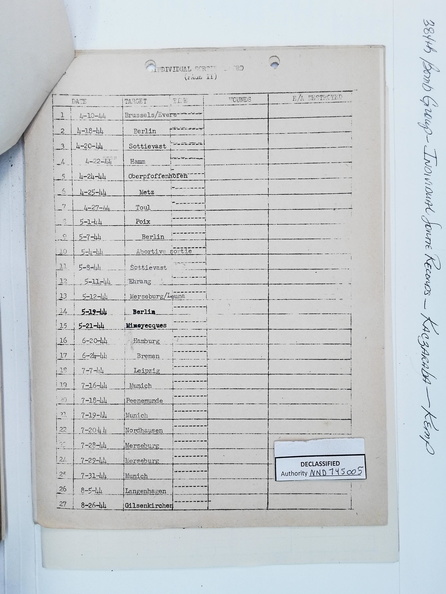 (PAGE II)
DATE TARGET WOUNDS E/A DESTROYED
1 4-10-44 Brussels/Evere
2 4-18-44 Berlin
3 4-20-44 Sottievast
4 4-22-44 Hamm
5 4-24-44 Oberpfoffenhofen
6 4-25-44 Metz
7 4-27-44 Toul
8 5-1-44 Poix
9 5-7-44 Berlin
10 5-4-44 Abortive sortie
11 5-8-44 Sottievast
12 5-11-44 Ehrang
13 5-12-44 Merseburg/Leuna
14 5-19-44 Berlin
15 5-21-44 Mimoyecques
16 6-20-44 Hamburg
17 6-24-44 Bremen
18 7-7-44 Leipzig
19 7-16-44 Munich
20 7-18-44 Peenemunde
21 7-19-44 Munich
22 7-20-44 Nordhausen
23 7-28-44 Merseburg
24 7-29-44 Merseburg
25 7-31-44 Munich
26 8-5-44 Langenhagen
27 8-26-44 Gilsenkirchen
DECLASSIFIED
Authority NND 745005
384th Bomb Group - Individual Sortie Records - Kaczaraba - Kemp